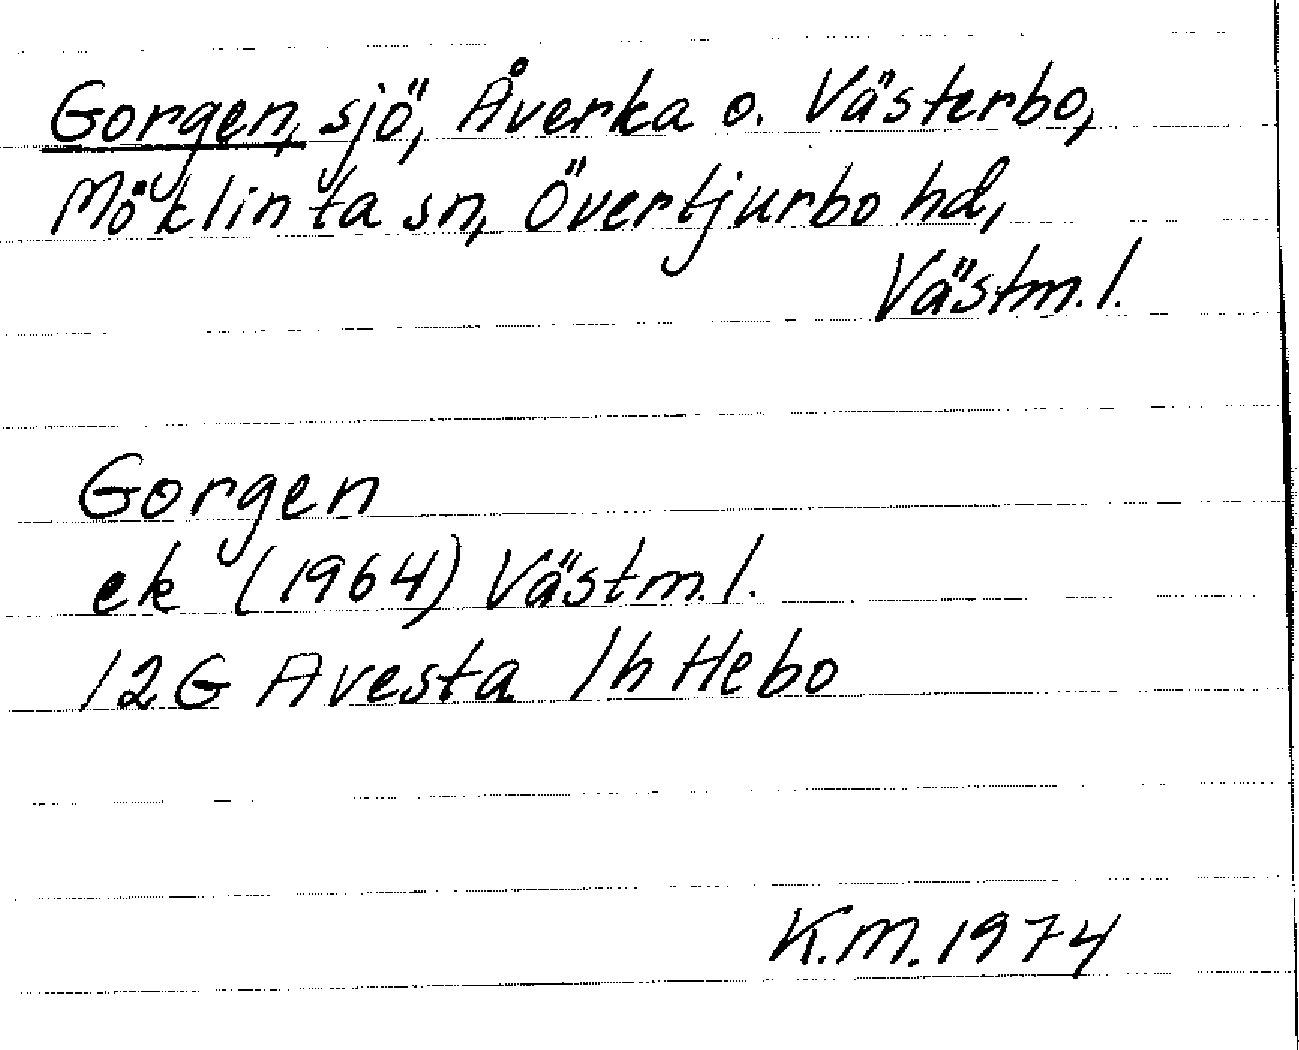 Gorgen, sjö, Åverka o. Västerbo,
Möklinta sn, Övertjurbo hd,
Västm. l.
Gorgen
ek (1964) Västm. l.
12G Avesta 1h Hebo
K.M. 1974